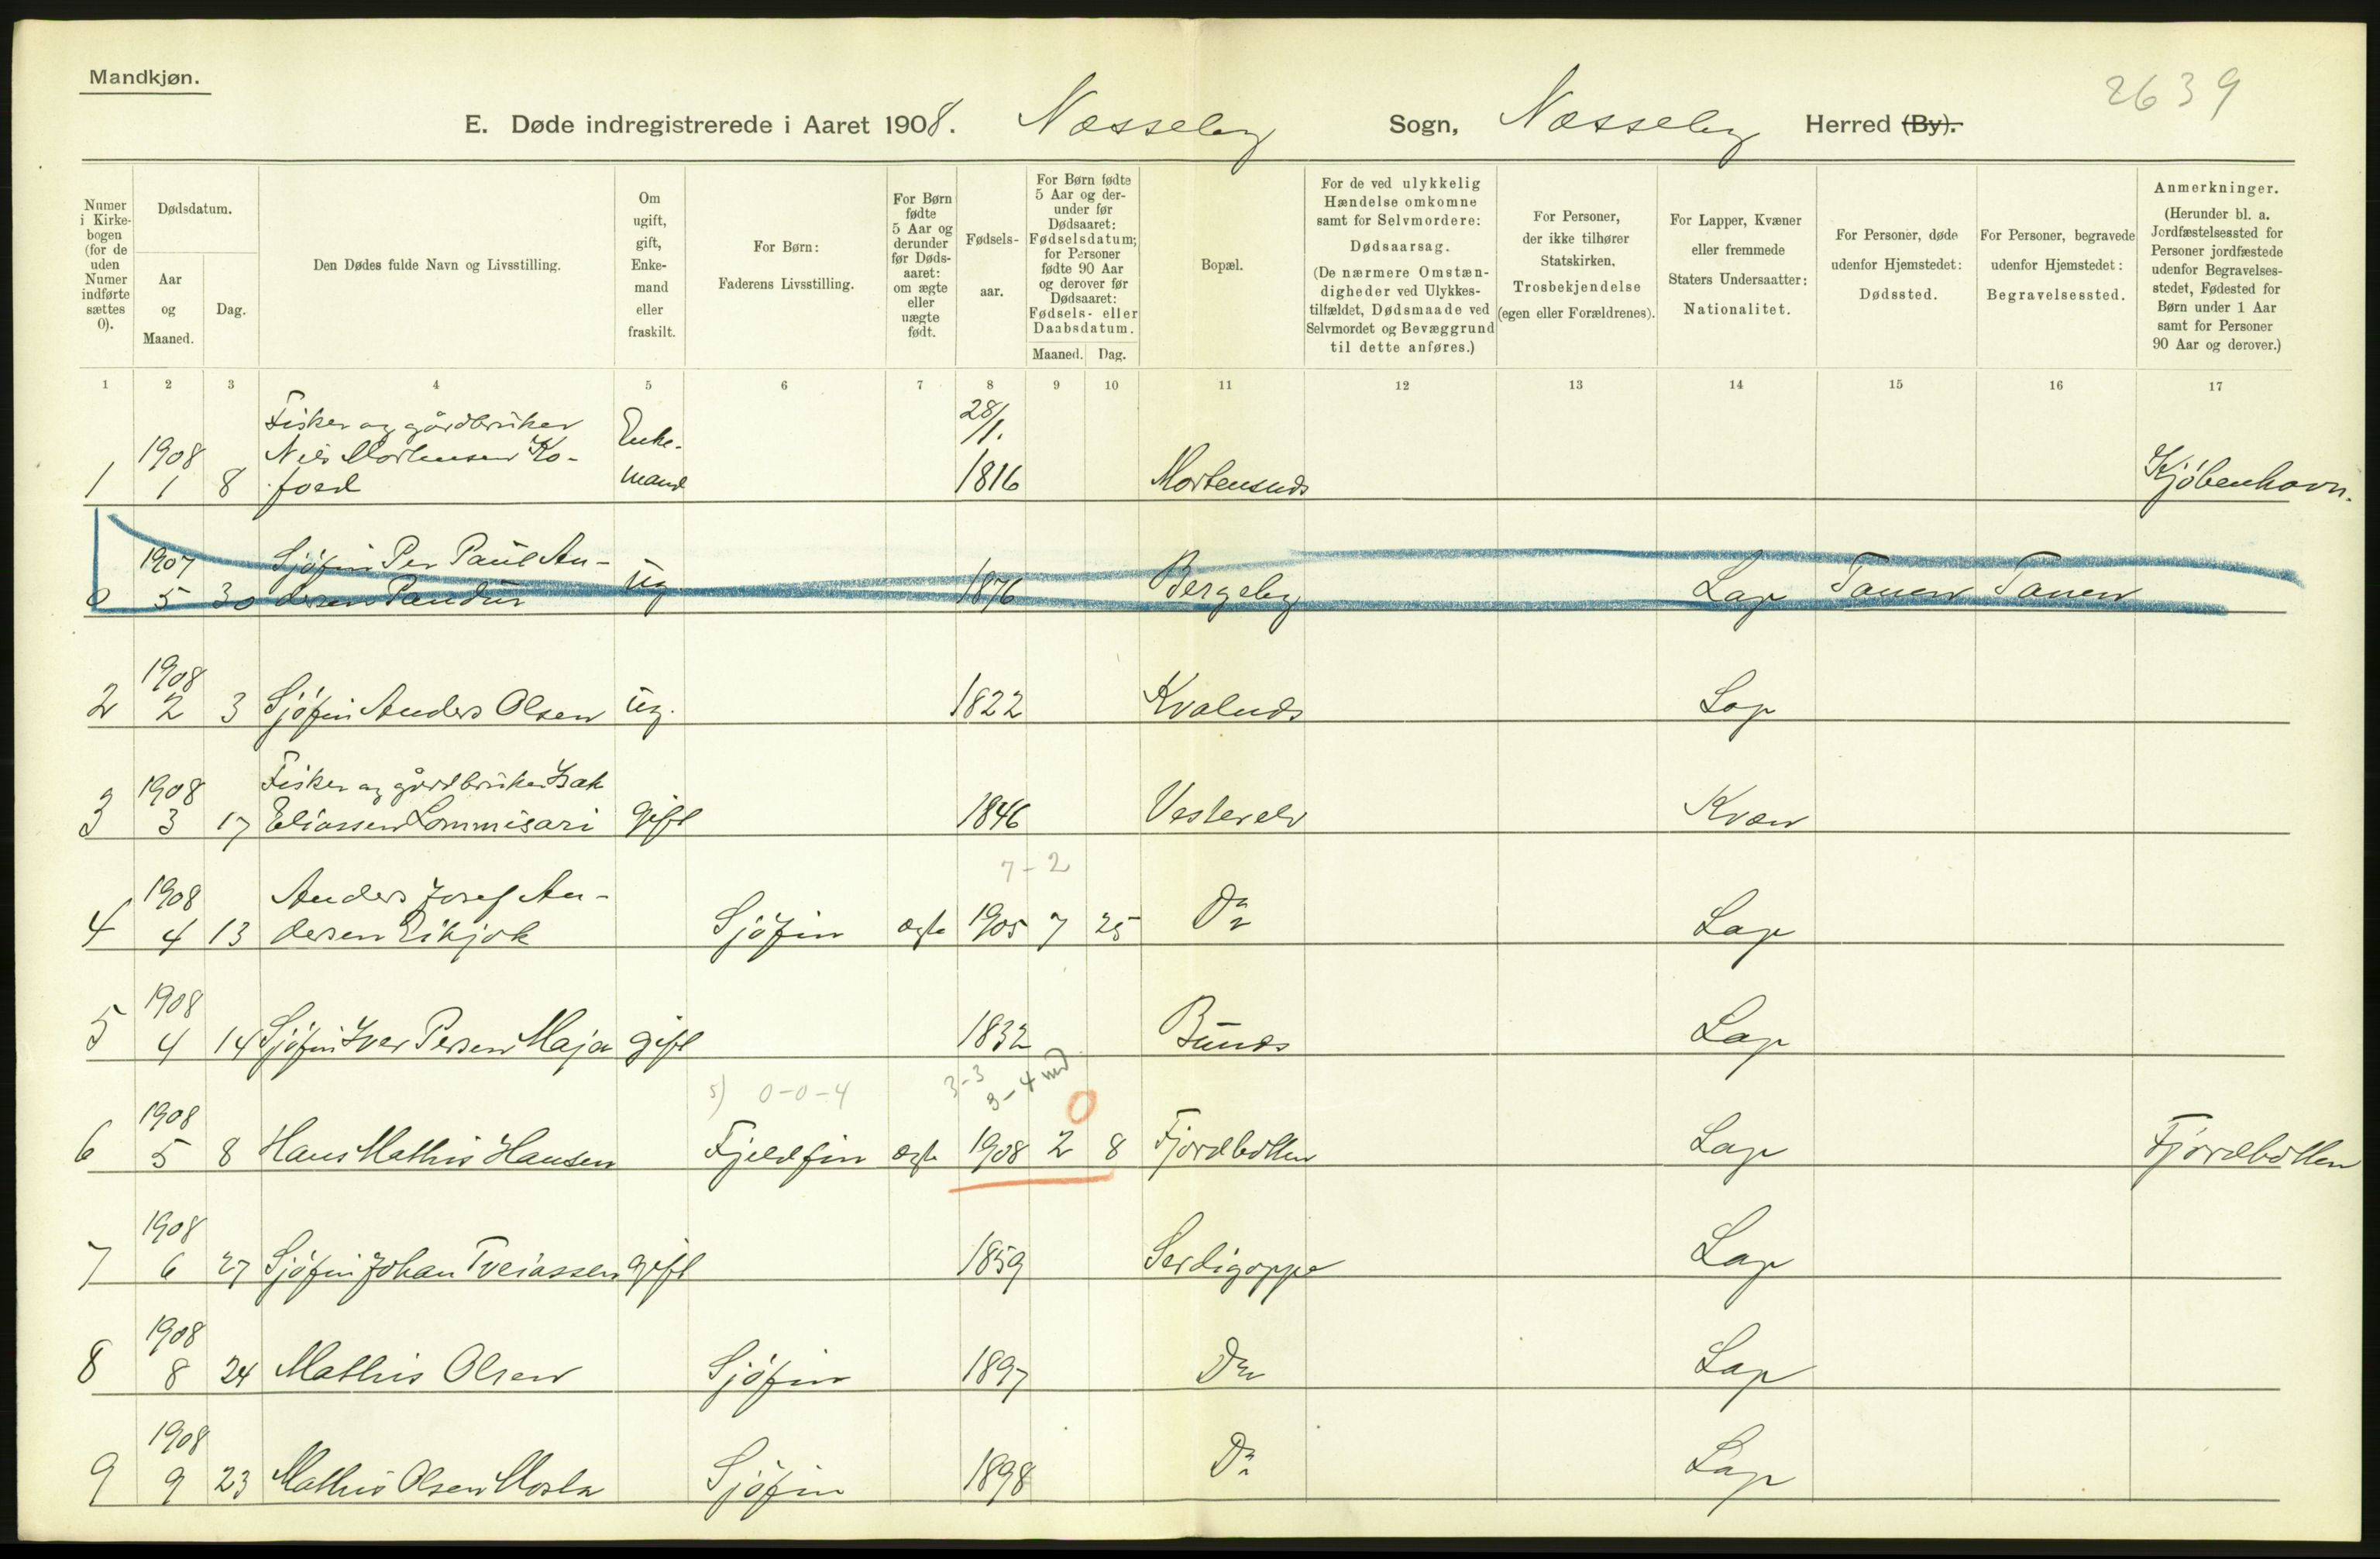 Mandkjøn.
2639
E. Døde indregistrerede i Aaret 1908. Næsseby Sogn, Næsseby Herred (By).
Numer i Kirkebogen (for de uden Numer indførte sættes 0).
Dødsdatum.
Aar og Maaned.
Dag.
Den Dødes fulde Navn og Livsstilling.
Om ugift, gift, Enkemand eller fraskilt.
For Børn: Faderens Livsstilling.
For Børn fødte 5 Aar og derunder før Dødsaaret: om ægte eller uægte født.
Fødselsaar.
For Børn fødte 5 Aar og derunder før Dødsaaret: Fødselsdatum; for Personer fødte 90 Aar og derover før Dødsaaret: Fødsels- eller Daabsdatum.
Maaned. Dag.
Bopæl.
For de ved ulykkelig Hændelse omkomne samt for Selvmordere: Dødsaarsag. (De nærmere Omstændigheder ved Ulykkestilfældet, Dødsmaade ved Selvmordet og Bevæggrund til dette anføres.)
For Personer, der ikke tilhører Statskirken, Trosbekjendelse (egen eller Forældrenes).
For Lapper, Kvæner eller fremmede Staters Undersaatter: Nationalitet.
For Personer, døde udenfor Hjemstedet: Dødssted.
For Personer, begravede udenfor Hjemstedet: Begravelsessted.
Anmerkninger. (Herunder bl. a. Jordfæstelsessted for Personer jordfæstede udenfor Begravelsesstedet, Fødested for Børn under 1 Aar samt for Personer 90 Aar og derover.)
1 2 3 4 5 6 7 8 9 10 11 12 13 14 15 16 17
Fisker og gårdbruker 28/1.
1908 Nils Mortensen Ko- Enke-
1 1 8 foed mand 1816 Mortensnds Kjöbenhavn.
1907 Sjöfin Per Paul An-
0 5 30 dersen ug 1876 Bergeby Lap Tanen Tanen
1908
2 2 3 Sjöfin Anders Olsen ug. 1822 Kvalnds Lap
1908 Fisker og gårdbruker Isak
3 3 17 Eliassen Lommisari gift 1846 Vesterelv Kvæn
7-2
1908 Anders Josef An-
4 4 13 dersen Eikjok Sjöfin ægte 1905 7 25 Do Lap
1908
5 4 14 Sjöfin Iver Persen Maja gift 1832 Bunds Lap
5) 0-0-4 3-3 3-4 md 0
1908
6 5 8 Hans Mathis Hansen Fjeldfin ægte 1908 2 8 Fjordbotten Lap Fjordbotten
1908
7 6 27 Sjöfin Johan Tveiassen gift 1859 Serdigoppe Lap
1908
8 8 24 Mathis Olsen Sjöfin 1897 Do Lap
1908
9 9 23 Mathis Olsen Sjöfin 1898 Do Lap